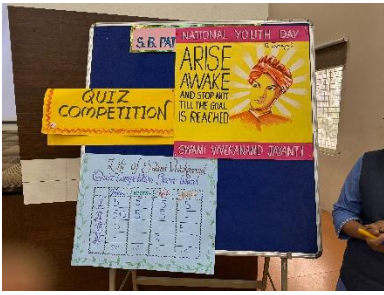 S. B. PAT
NATIONAL YOUTH DAY
ARISE
AWAKE
AND STOP NOT
TILL THE GOAL
IS REACHED
SWAMI VIVEKANAND JAYANTI
QUIZ
COMPETITION
Life of Swami Vivekanand
Quiz Competition Score Board